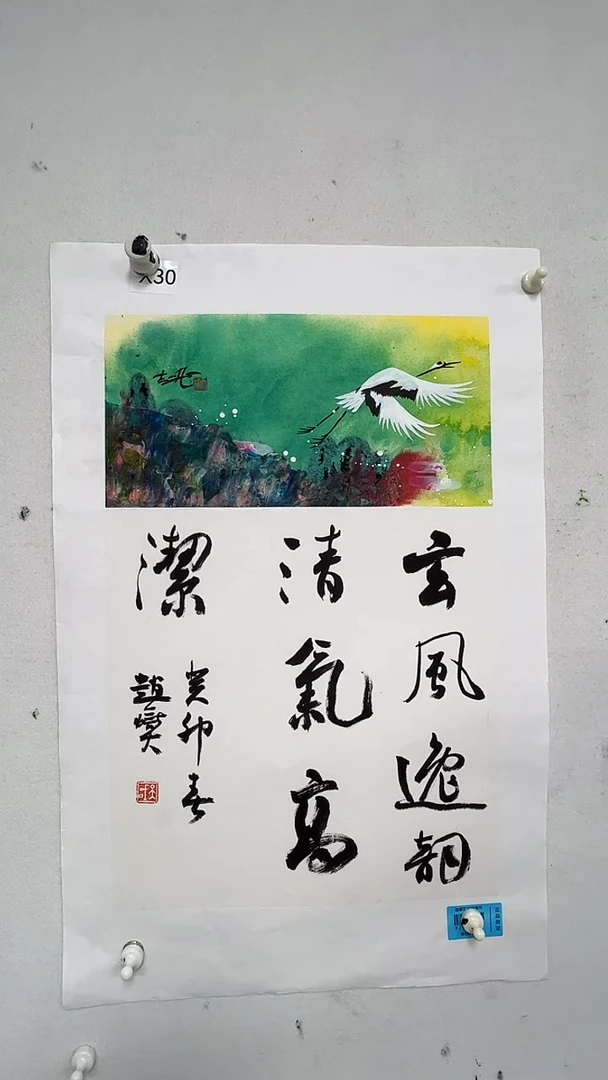 X30
玄風逸韻
清氣高
潔
癸卯春
趙奭